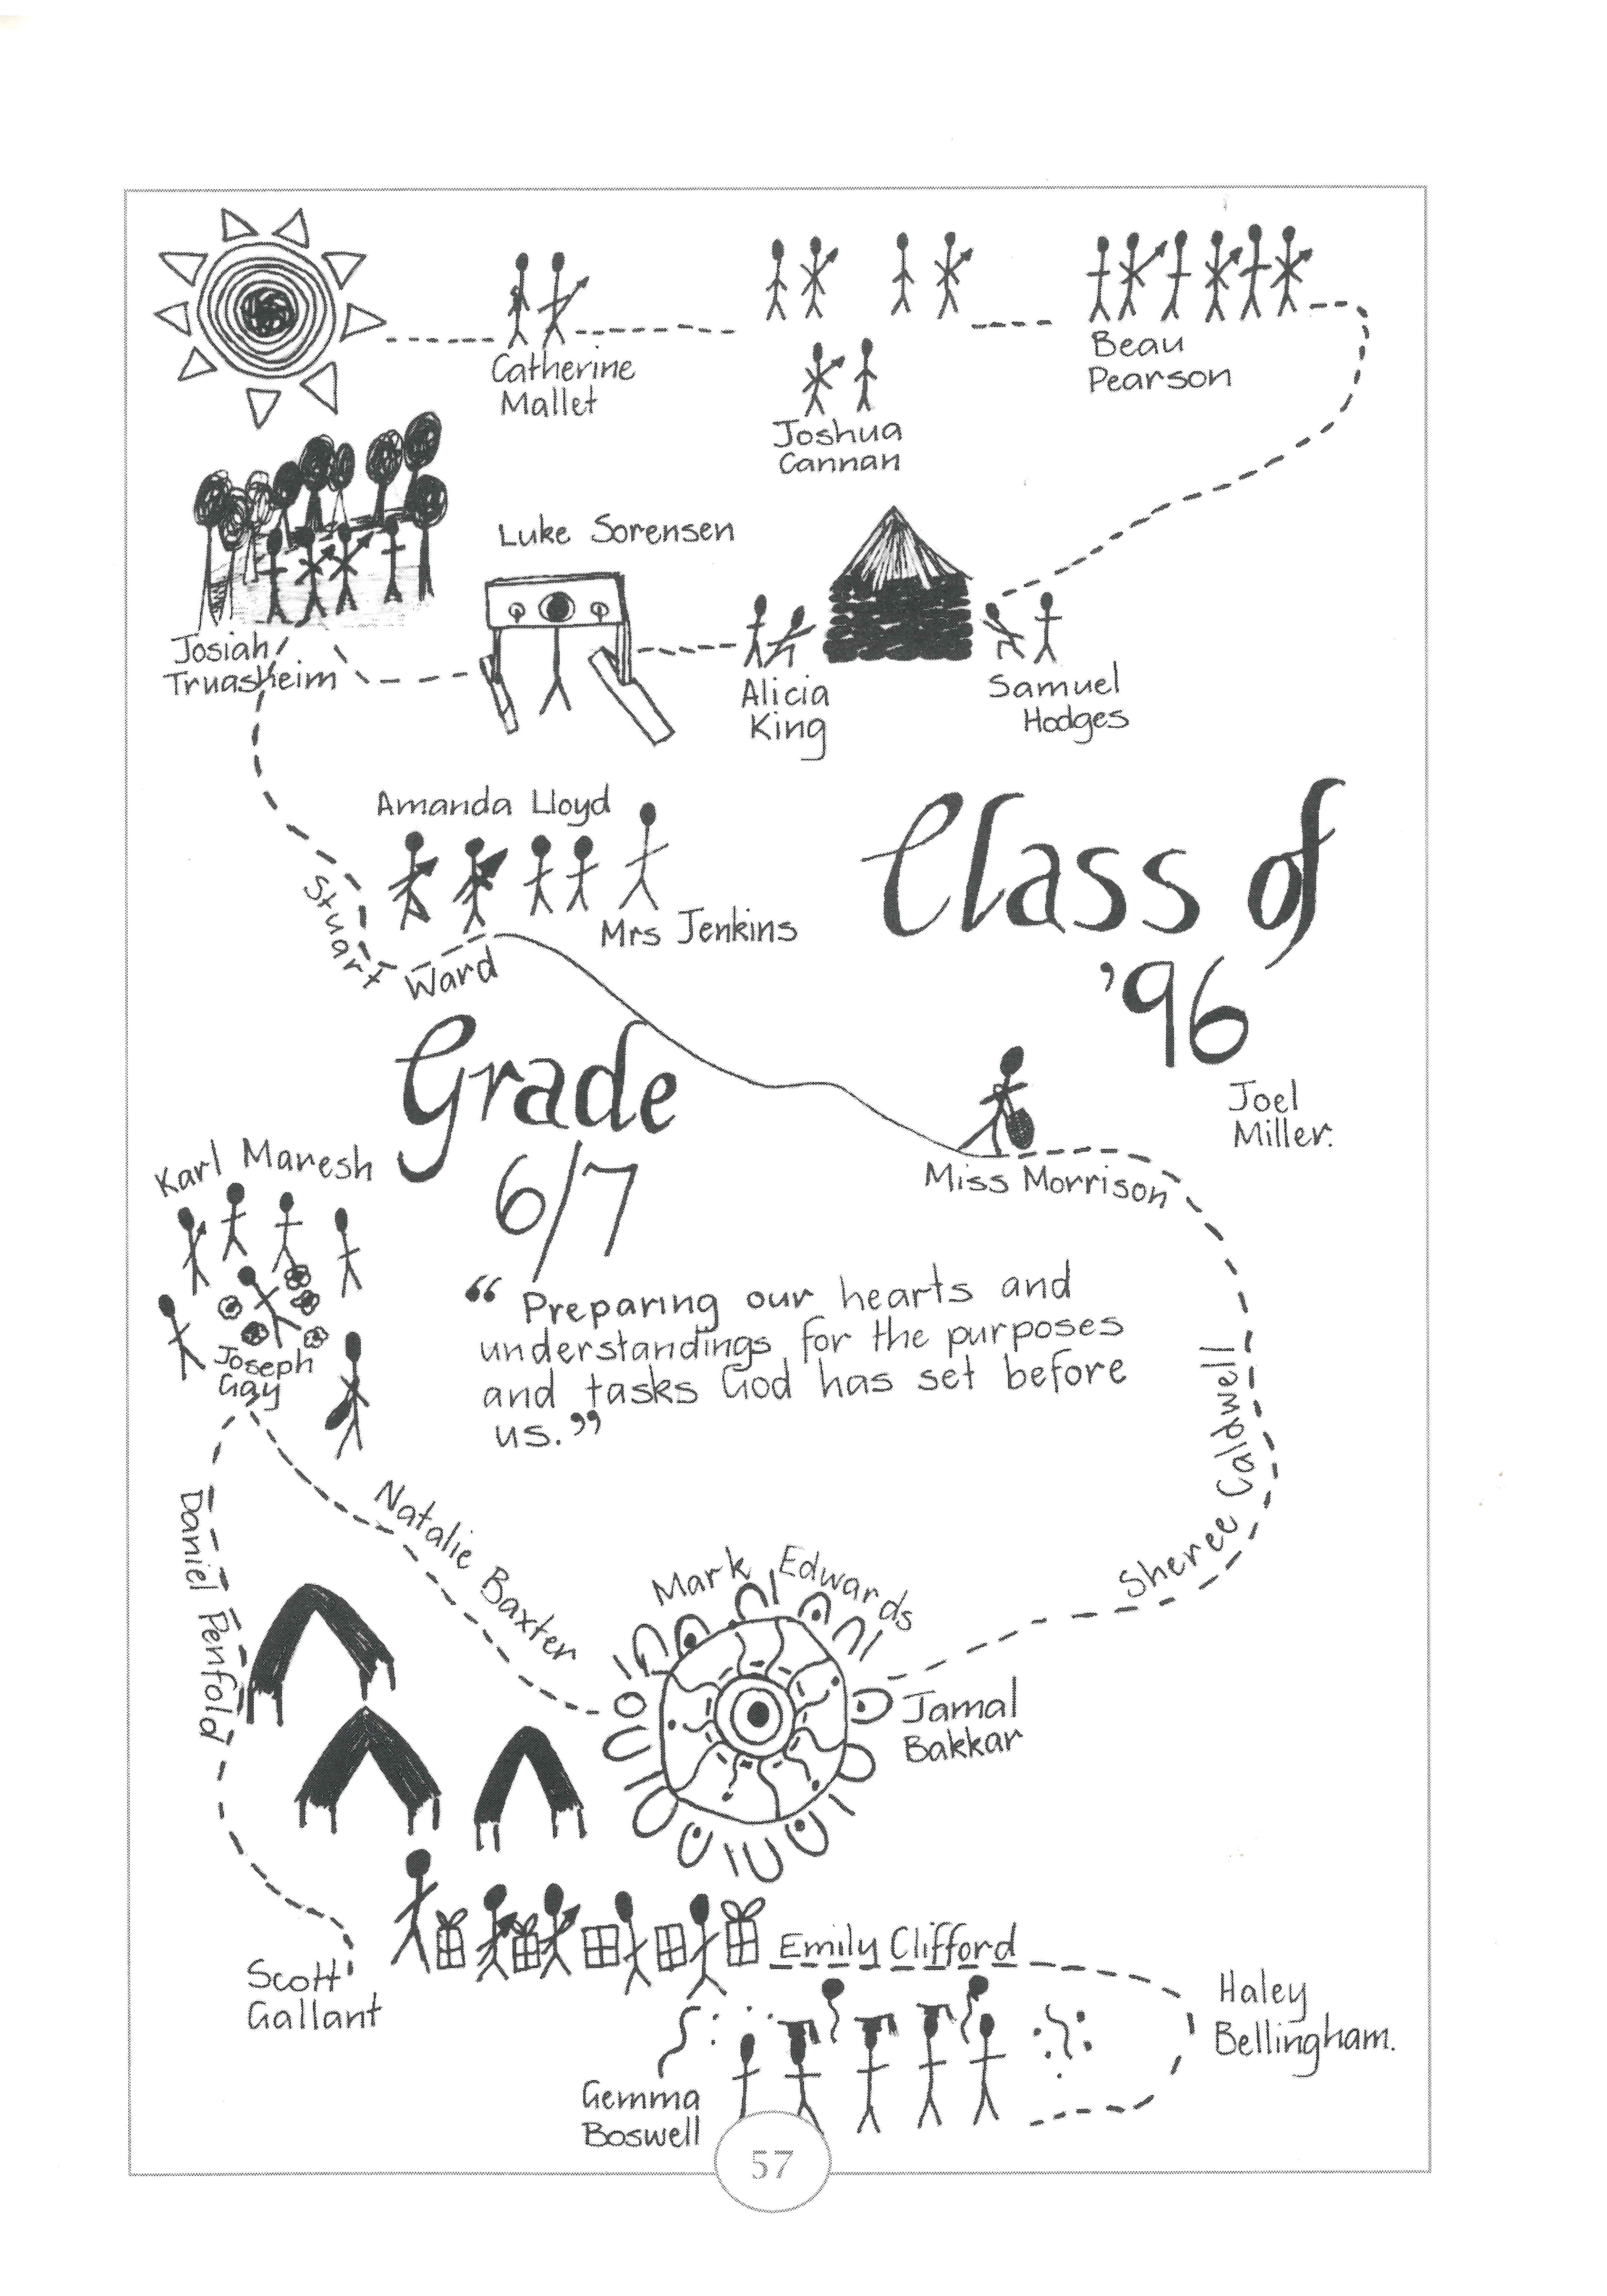 Catherine
Mallet
Joshua
Cannan
Beau
Pearson
Luke Sorensen
Josiah
Truasheim
Alicia
King
Samuel
Hodges
Amanda Lloyd
Mrs Jenkins
Stuart Ward
Class of
'96
Joel
Miller.
Grade
6/7
Miss Morrison
Karl Maresh
Joseph
Gay
“Preparing our hearts and
understandings for the purposes
and tasks God has set before
us.”
Sheree Caldwell
Daniel Penfold
Natalie Baxter
Mark Edwards
Jamal
Bakkar
Emily Clifford
Scott
Gallant
Haley
Bellingham.
Gemma
Boswell
57